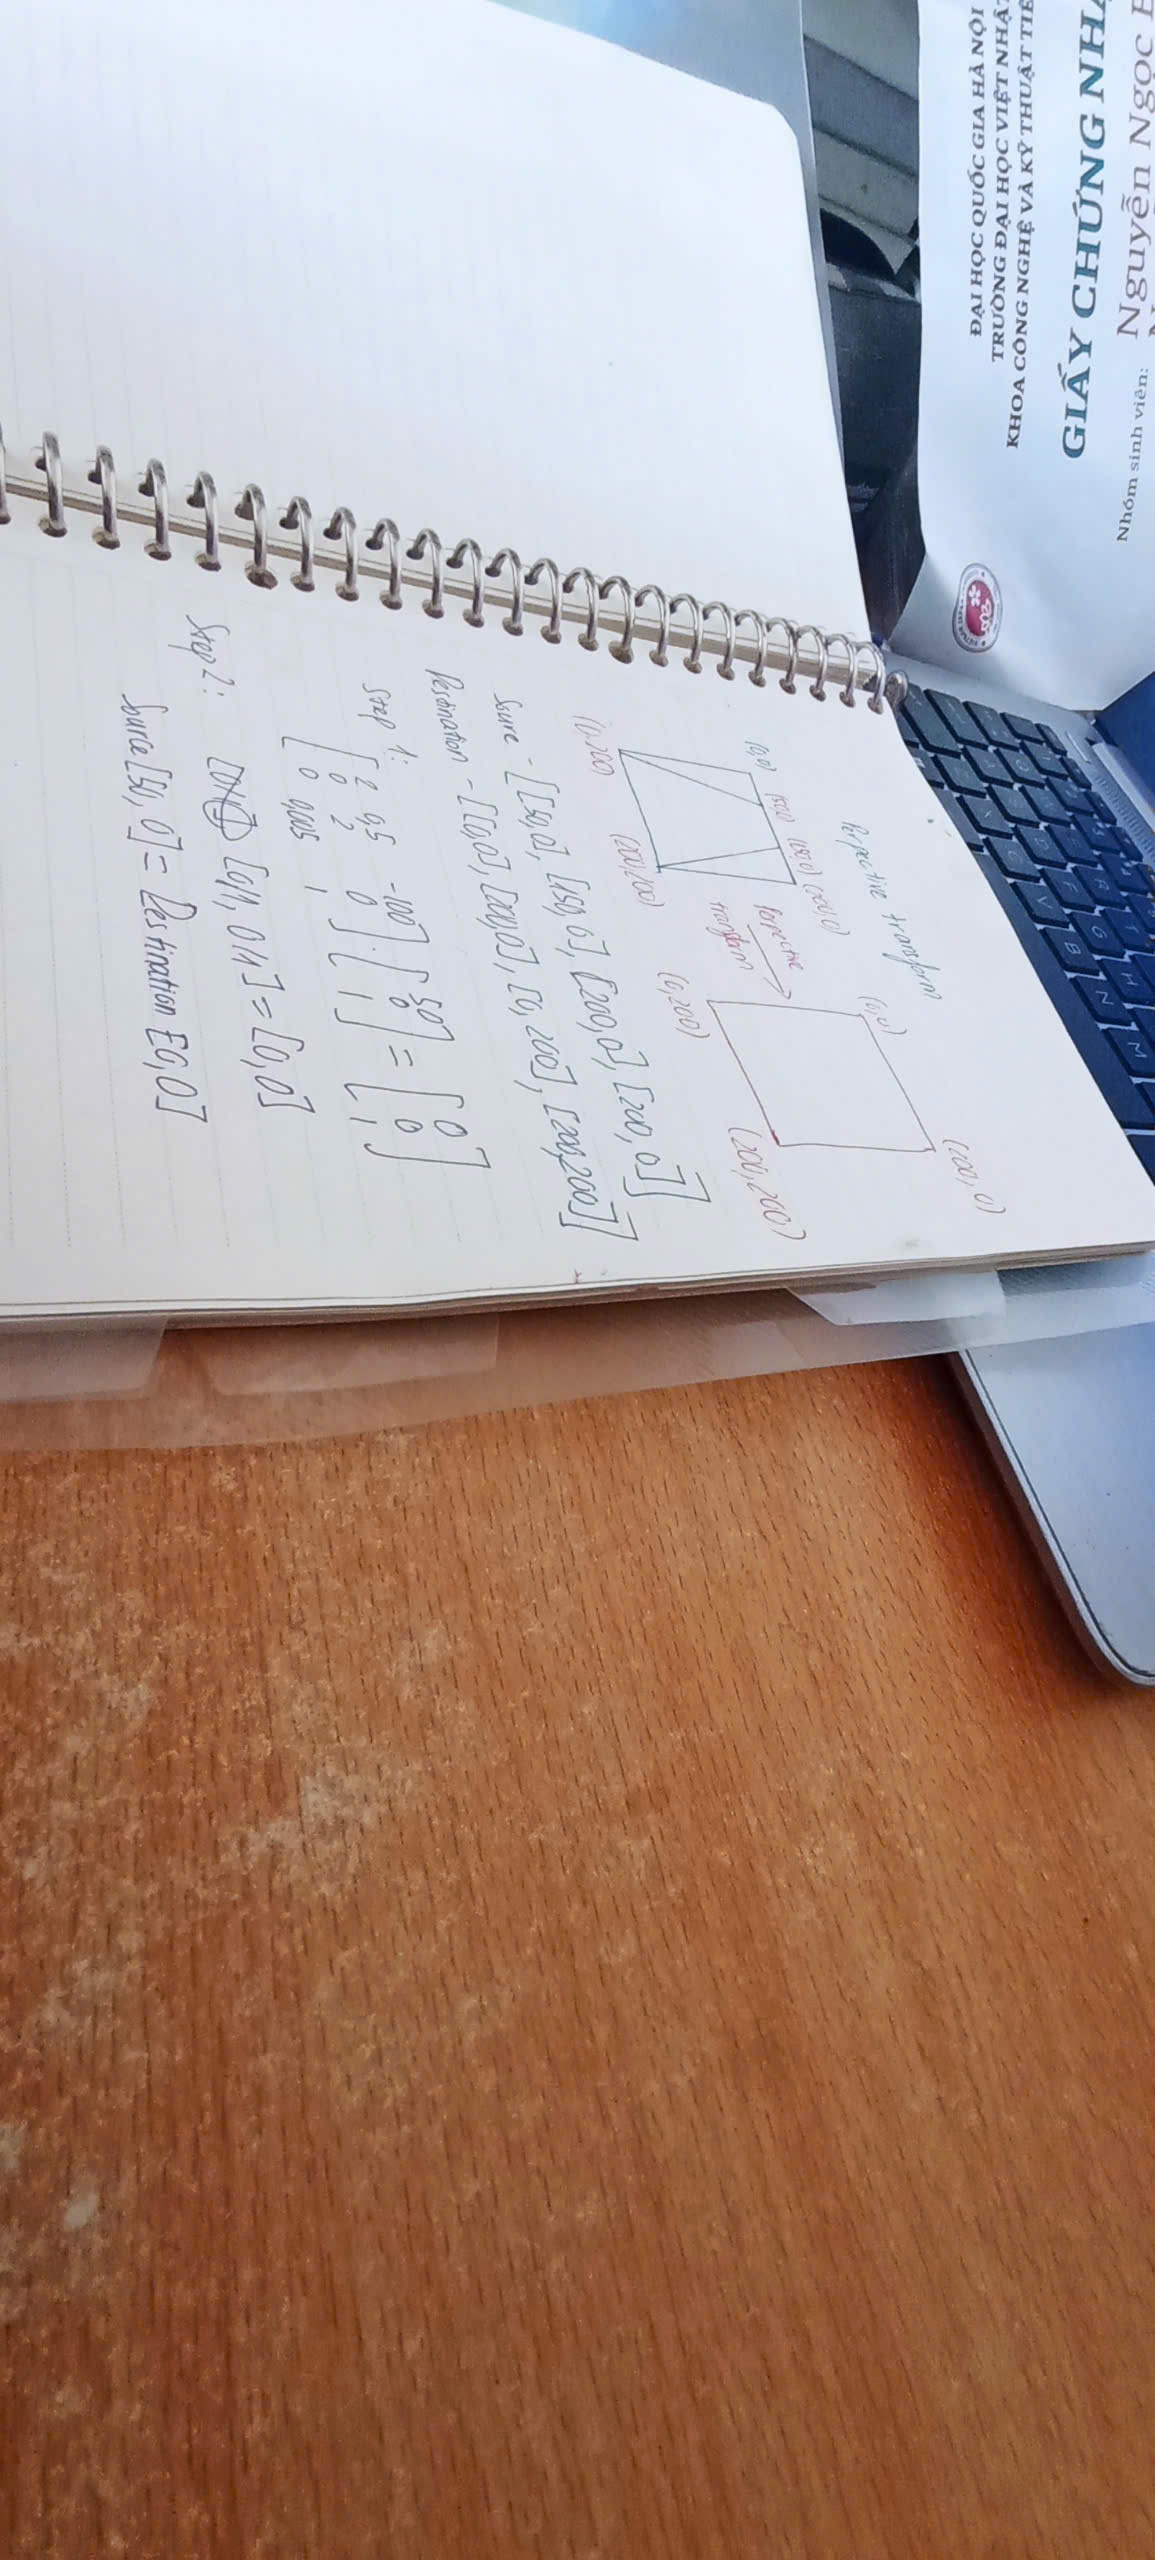 ĐẠI HỌC QUỐC GIA HÀ NỘI
TRƯỜNG ĐẠI HỌC VIỆT NHẬT
KHOA CÔNG NGHỆ VÀ KỸ THUẬT TIÊ
GIẤY CHỨNG NHẬ
Nhóm sinh viên: Nguyễn Ngọc
Perspective transform
(0,0) (50,0) (150,0) (200,0)
(0,200) (200,200)
perspective
transform
(0,0) (200,0)
(0,200) (200,200)
Source - [[50,0], [150,0], [200,0], [200,0]]
Destination - [[0,0], [200,0], [0,200], [200,200]]
Step 1:
[2 0,5 -100] [50] [0]
[0 2 0] . [0] = [0]
[0 0,005 1] [1] [1]
Step 2: [0/1, 0/1] = [0,0]
Source [50, 0] = Destination [0,0]